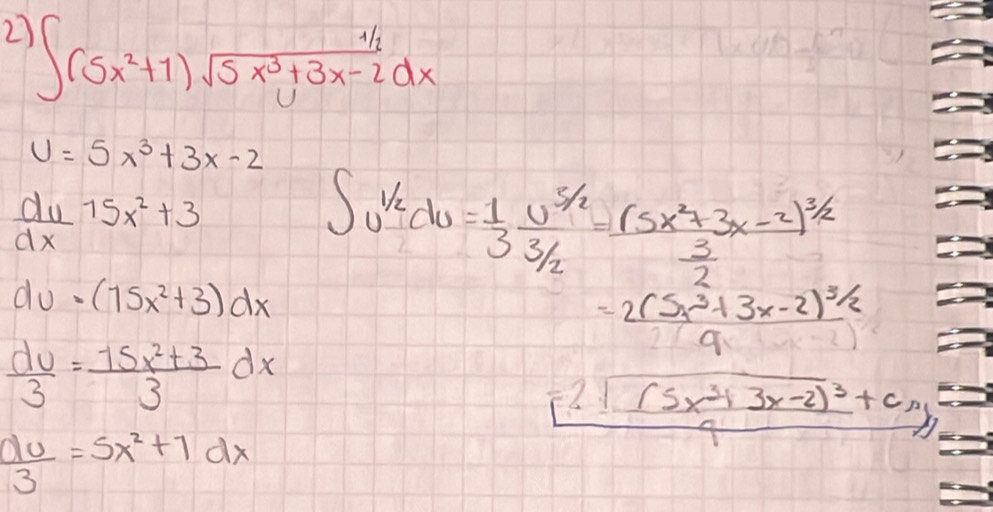 2) ∫(5x²+1) √5x³+3x-2 dx ^1/2
U
U = 5x³+3x-2
du/dx 15x²+3
du = (15x²+3)dx
du/3 = 15x²+3/3 dx
du/3 = 5x²+1 dx
∫u^1/2 du = 1/3 u^3/2 / 3/2 = (5x²+3x-2)^3/2 / 3/2
= 2(5x³+3x-2)^3/2 / 9
= 2√(5x³+3x-2)³ / 9 + c